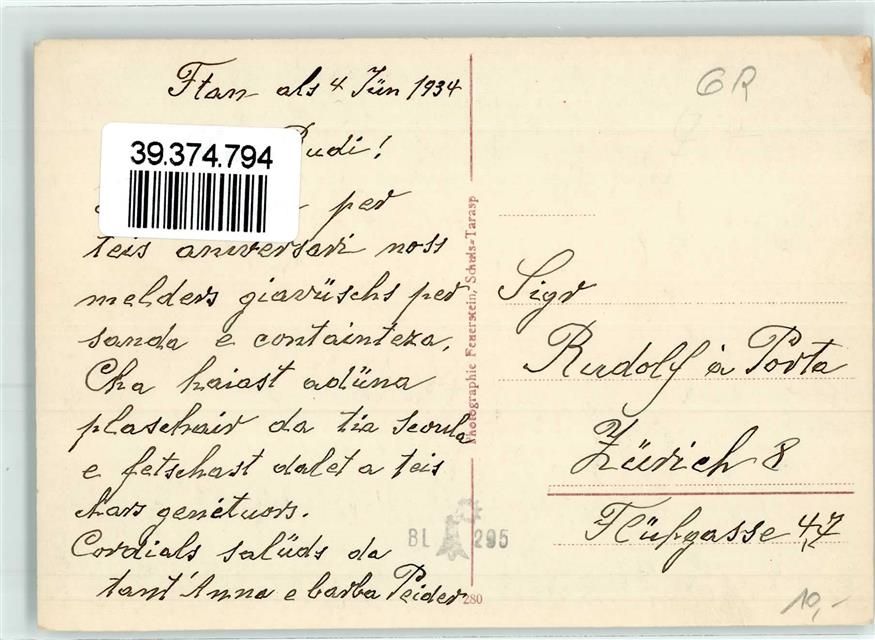 Ftan als 4 Jün 1934
Rudi!
39.374.794
per
teis aniversari noss
melders giavüschs per
sanda e containteza.
Cha haiast adüna
plaschair da tia scoula
e fetschast dalet a teis
chars genituors.
Cordials salüds da
tant'Anna e barba Peider
Photographie Feuerstein, Schuls-Tarasp
BL 295
280
GR
Sigr
Rudolf à Porta
Zürich 8
Flühgasse 47
10,-